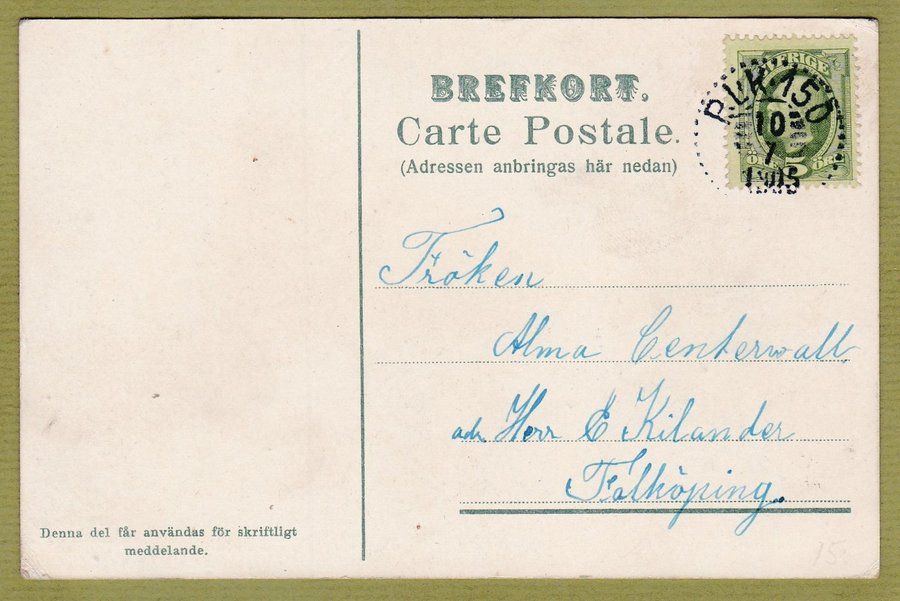 BREFKORT.
Carte Postale.
(Adressen anbringas här nedan)
SVERIGE
PLK 150
10
1
1905
5
ÖRE
Fröken
Alma Centerwall
adr. Herr E Kilander
Falköping.
Denna del får användas för skriftligt
meddelande.
15